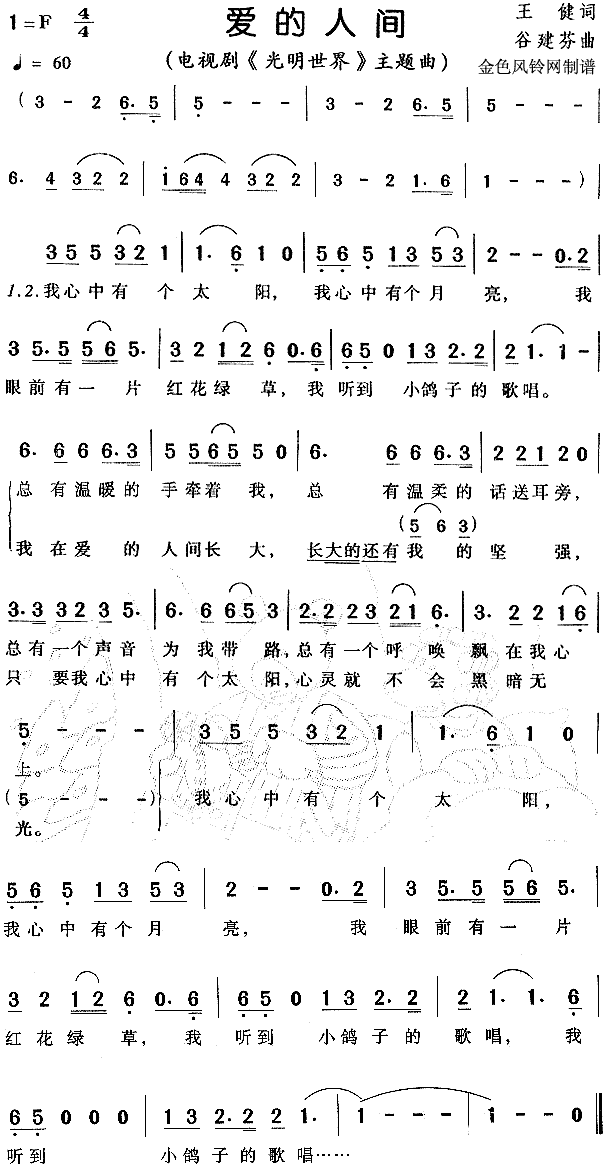 1=F 4/4 爱的人间 王 健词
♩= 60 (电视剧《光明世界》主题曲) 谷建芬曲
金色风铃网制谱
( 3 - 2 6. 5 | 5 - - - | 3 - 2 6. 5 | 5 - - - |
6. 4 3 2 2 | i 6 4 4 3 2 2 | 3 - 2 1. 6 | 1 - - - ) |
3 5 5 3 2 1 | 1. 6 1 0 | 5 6 5 1 3 5 3 | 2 - - 0. 2 |
1.2.我心中有 个 太 阳, 我心中有个月 亮, 我
3 5. 5 5 6 5. | 3 2 1 2 6 0. 6 | 6 5 0 1 3 2. 2 | 2 1. 1 - |
眼前有一 片 红花绿 草, 我 听到 小鸽子的歌唱。
6. 6 6 6. 3 | 5 5 6 5 5 0 | 6. 6 6 6. 3 | 2 2 1 2 0 |
总 有温暖的 手牵着 我, 总 有温柔的 话送耳旁,
( 5 6 3 )
我在爱 的 人间长 大, 长大的还有我 的 坚 强,
3. 3 3 2 3 5. | 6. 6 6 5 3 | 2. 2 2 3 2 1 6. | 3. 2 2 1 6 |
总有一个声音 为 我带 路,总有一个呼 唤 飘在我心
只 要我心中 有 个太 阳,心灵就 不 会 黑暗无
5 - - - | 3 5 5 3 2 1 | 1. 6 1 0 |
上。
( 5 - - - ) 我心中有 个 太 阳,
光。
5 6 5 1 3 5 3 | 2 - - 0. 2 | 3 5. 5 5 6 5. |
我心中有个月 亮, 我 眼前有一 片
3 2 1 2 6 0. 6 | 6 5 0 1 3 2. 2 | 2 1. 1. 6 |
红花绿 草, 我 听到 小鸽子的 歌唱, 我
6 5 0 0 0 | 1 3 2. 2 2 1. | 1 - - - | 1 - - 0 ‖
听到 小鸽子的歌唱……